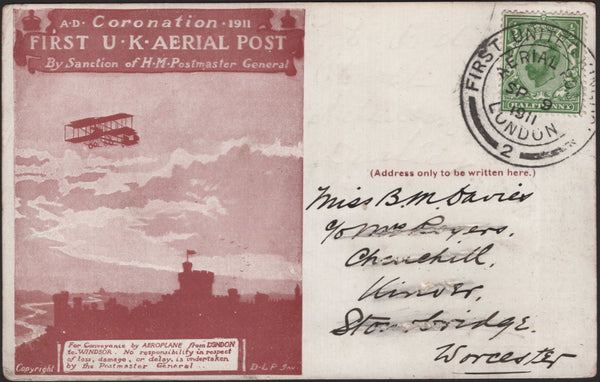 A·D· Coronation ·1911
FIRST U·K·AERIAL POST
By Sanction of H·M·Postmaster General
For Conveyance by AEROPLANE from LONDON
to WINDSOR. No responsibility in respect
of loss, damage, or delay, is undertaken
by the Postmaster General
Copyright
HALFPENNY
FIRST UNITED
AERIAL
SP 9
1911
LONDON
2
(Address only to be written here.)
Miss B. M. Davies
c/o Mrs Rogers,
Churchill,
Kinver,
Stourbridge.
Worcester